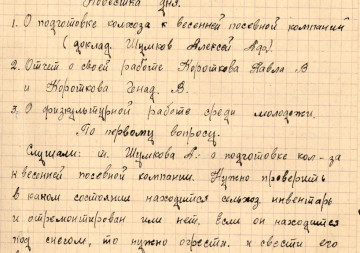 Повестка дня.
1. О подготовке колхоза к весенней посевной компании
(доклад. Шумков Алексей Афо).
2. Отчёт о своей работе Короткова Павла В
и Короткова Генад. В.
3. О физкультурной работе среди молодежи.
По первому вопросу.
Слушали: т. Шумкова А. о подготовке кол-за
к весенней посевной компании. Нужно проверить
в каком состоянии находится сельхоз инвентарь
и отремонтирован или нет. если он находится
под снегом, то нужно обрести. и свести его